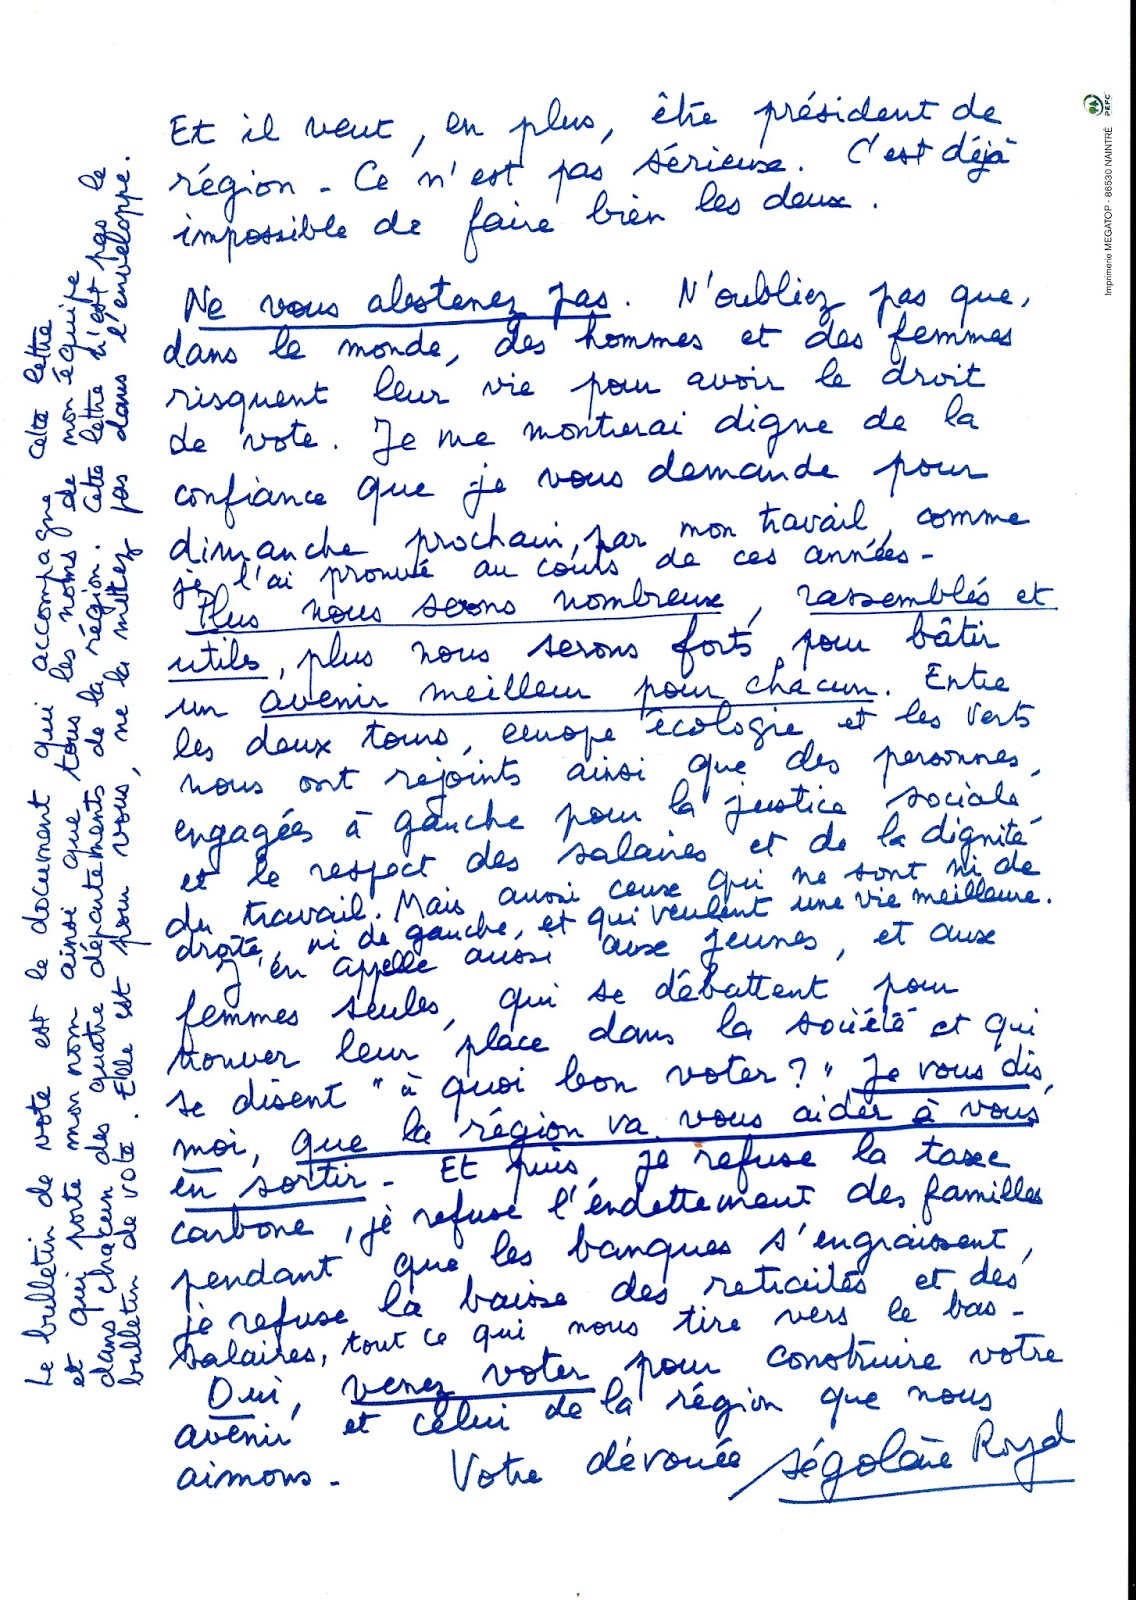 Et il veut, en plus, être président de
région - Ce n'est pas sérieux. C'est déjà
impossible de faire bien les deux.
Ne vous abstenez pas. N'oubliez pas que,
dans le monde, des hommes et des femmes
risquent leur vie pour avoir le droit
de vote. Je me montrerai digne de la
confiance que je vous demande pour
dimanche prochain, par mon travail, comme
je l'ai prouvé au cours de ces années -
Plus nous serons nombreux, rassemblés et
utiles, plus nous serons forts pour bâtir
un avenir meilleur pour chacun. Entre
les deux tours, europe écologie et les verts
nous ont rejoints ainsi que des personnes,
engagées à gauche pour la justice sociale
et le respect des salaires et de la dignité
du travail. Mais aussi ceux qui ne sont ni de
droite, ni de gauche, et qui veulent une vie meilleure.
J'en appelle aussi aux jeunes, et aux
femmes seules, qui se débattent pour
trouver leur place dans la société et qui
se disent "à quoi bon voter?" Je vous dis,
moi, que la région va vous aider à vous
en sortir - Et puis, je refuse la taxe
carbone, je refuse l'endettement des familles
pendant que les banques s'engraissent,
je refuse la baisse des retraites et des
salaires, tout ce qui nous tire vers le bas -
Oui, venez voter pour construire votre
avenir et celui de la région que nous
aimons - Votre dévouée Ségolène Royal
Le bulletin de vote est le document qui accompagne cette lettre
et qui porte mon nom ainsi que tous les noms de mon équipe
dans chacun des quatre départements de la région. Cette lettre n'est pas le
bulletin de vote. Elle est pour vous, ne la mettez pas dans l'enveloppe.
Imprimerie MEGATOP - 86530 NAINTRÉ
PEFC